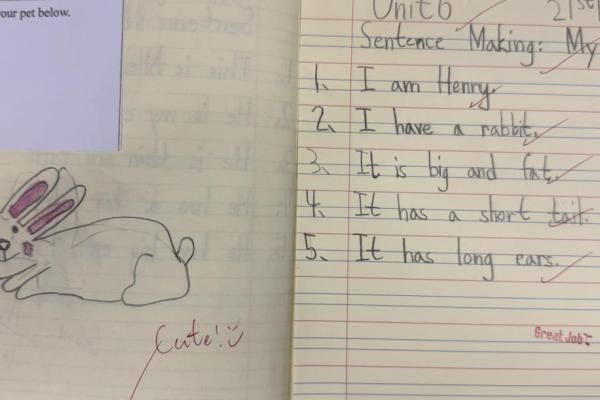 your pet below.
Cute!
Unit 6 21st
Sentence Making: My
1、 I am Henry.
2、 I have a rabbit.
3、 It is big and fat.
4、 It has a short tail.
5、 It has long ears.
Great Job